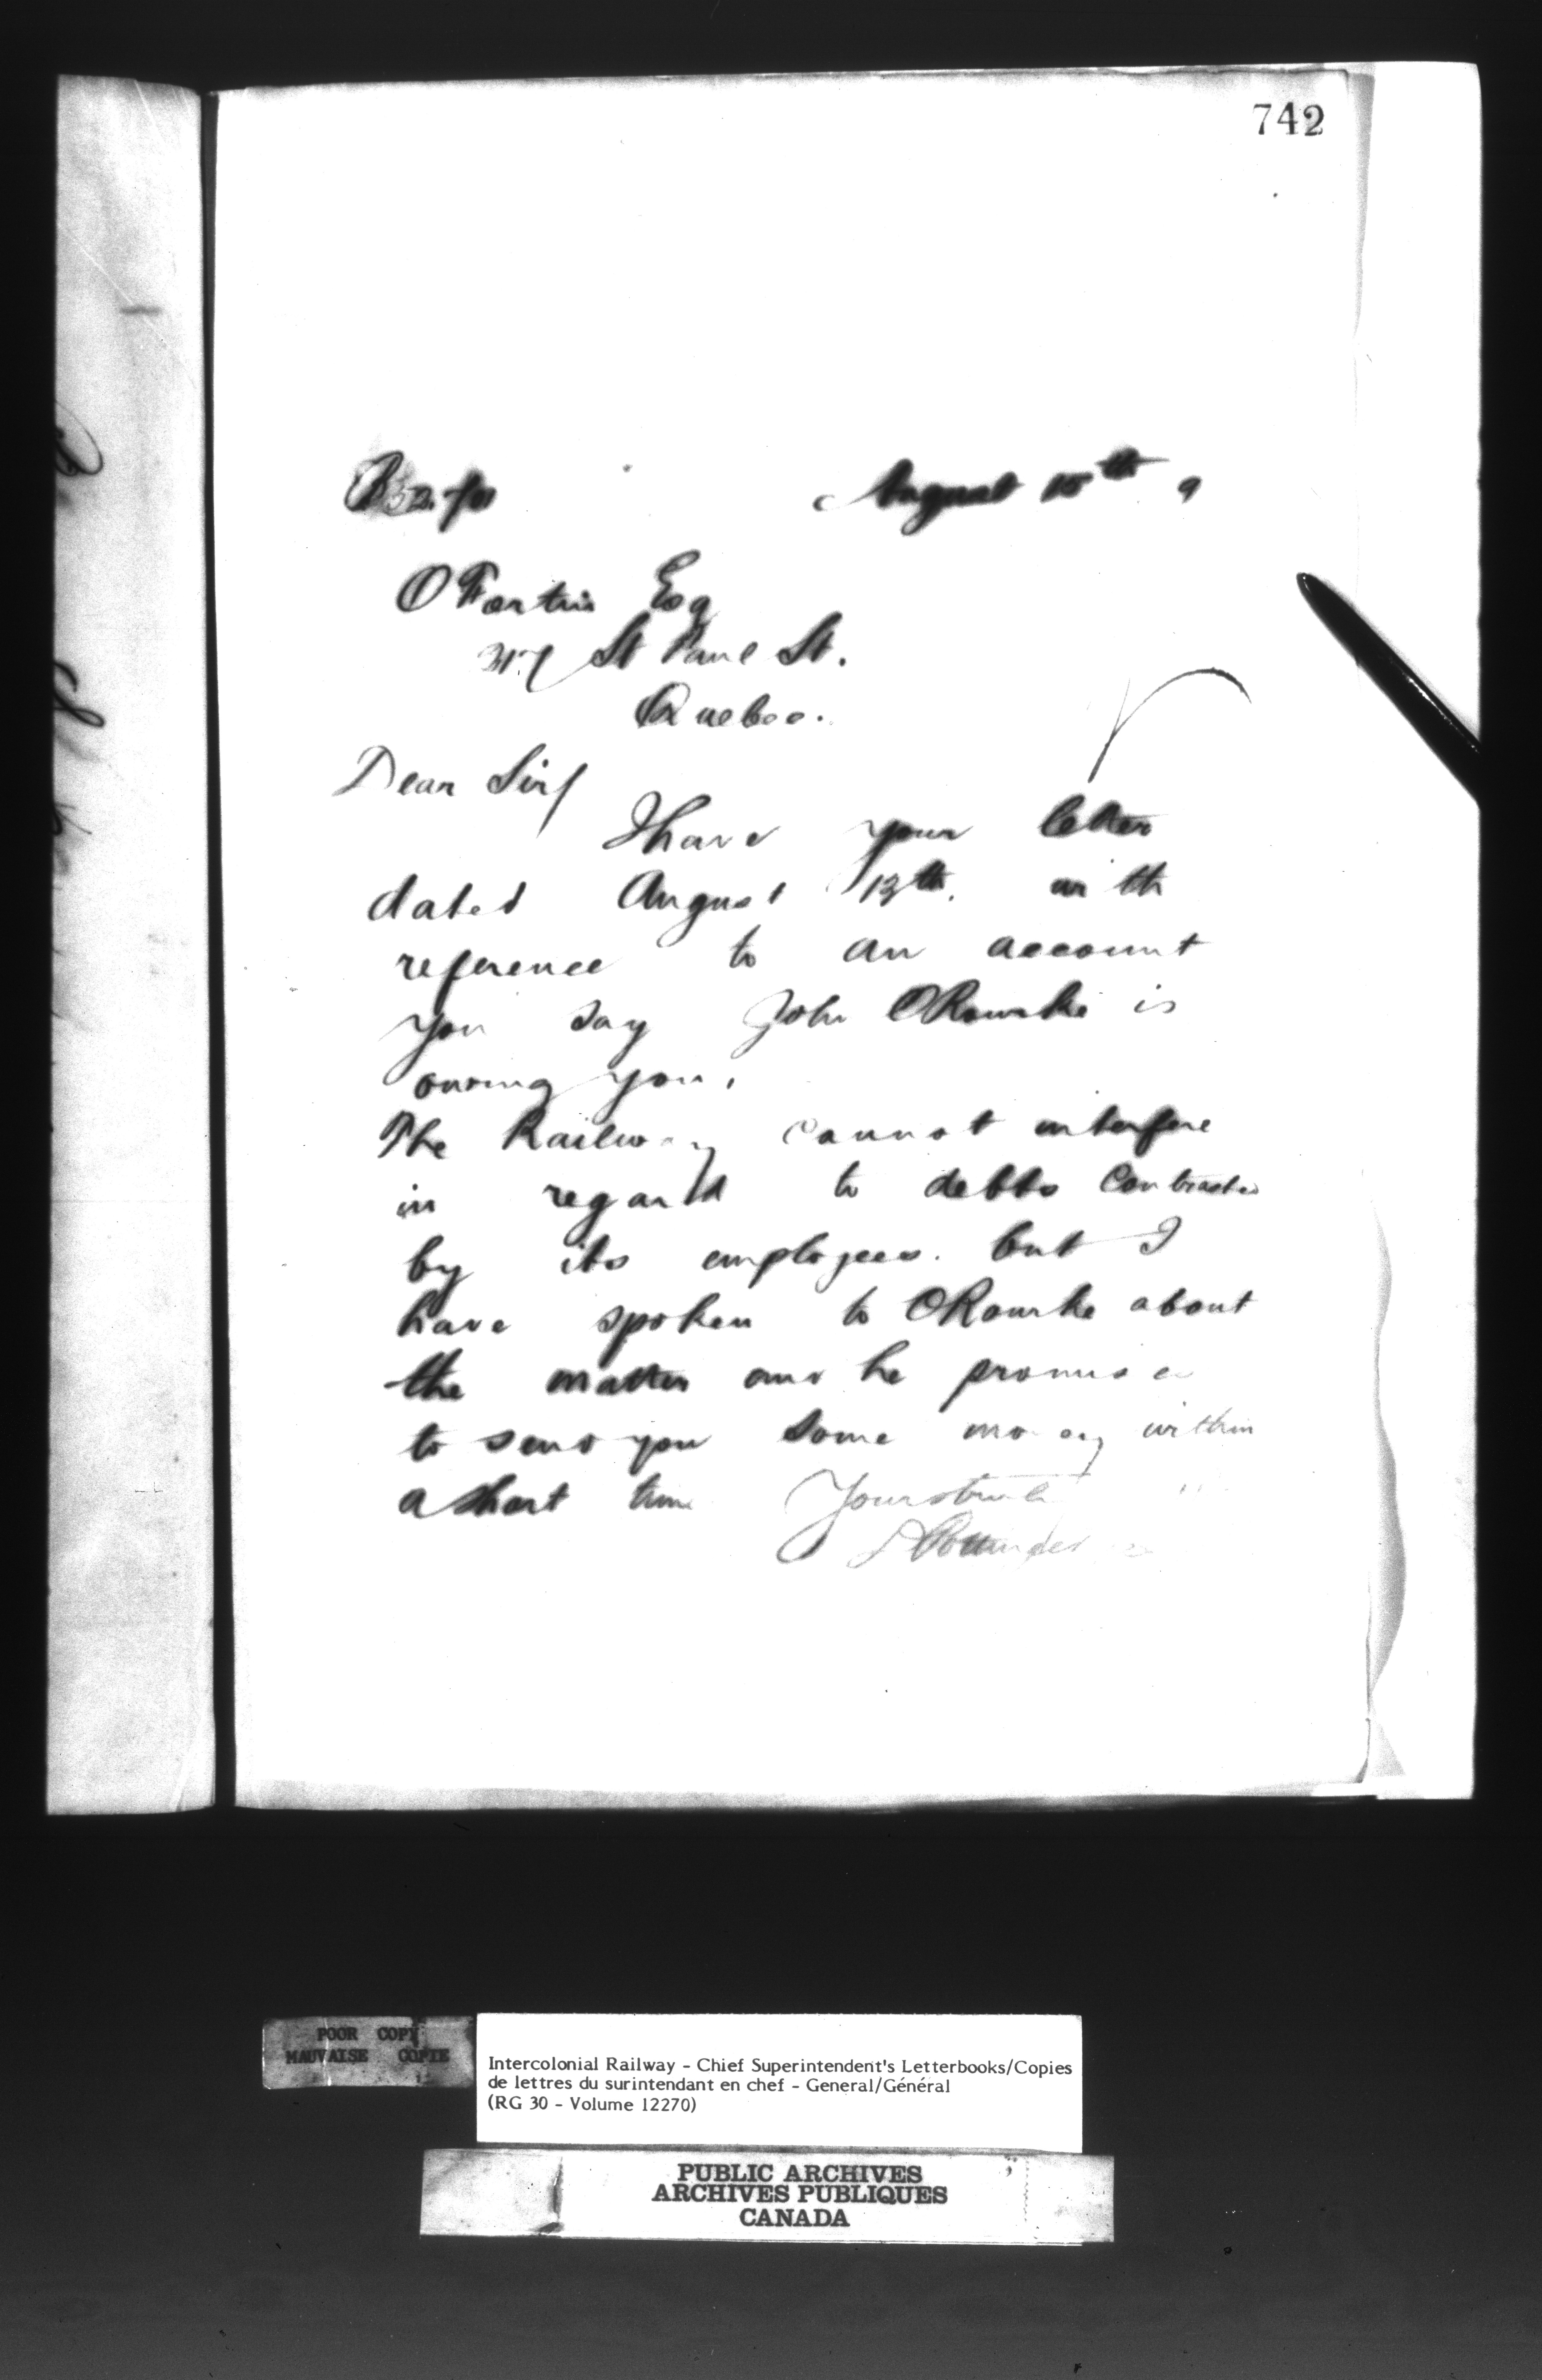 742
August 15th 9
O Fortin Esq
317 St Paul St.
Quebec.
Dear Sir/
I have your letter
dated August 13th. with
reference to an account
you say John O'Rourke is
owing you.
The Railway cannot interfere
in regard to debts contracted
by its employees. but I
have spoken to ORourke about
the matter and he promises
to send you some money within
a short time Yours truly
D Pottinger
POOR COPY
MAUVAISE COPIE
Intercolonial Railway - Chief Superintendent's Letterbooks/Copies
de lettres du surintendant en chef - General/Général
(RG 30 - Volume 12270)
PUBLIC ARCHIVES
ARCHIVES PUBLIQUES
CANADA